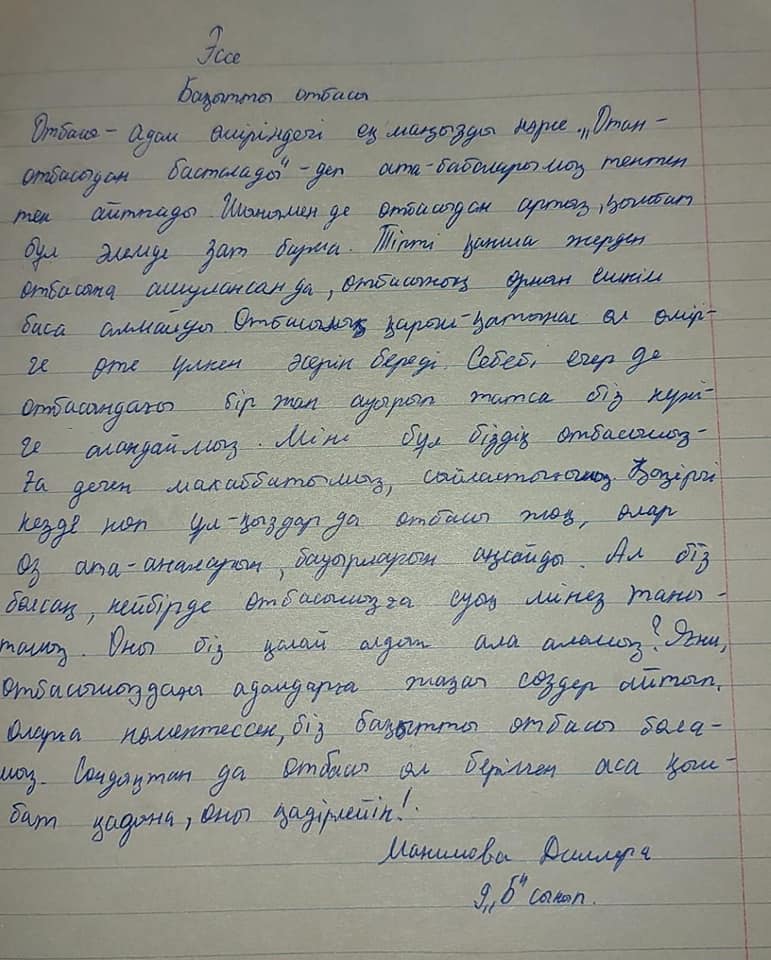 Эссе
Бақытты отбасы
Отбасы - адам өміріндегі ең маңызды нәрсе. "Отан -
отбасыдан басталады" - деп ата-бабаларымыз тектен
тек айтпады. Шынымен де отбасыдан артық, қымбат
бұл әлемде зат барма. Тіпті қанша жерден
отбасыңа ашулансаң да, отбасының орнын ешкім
баса алмайды. Отбасының қарым-қатынас ол өмір-
ге өте үлкен әсерін береді. Себебі, егер де
отбасындағы бір жан ауырып жатса біз күні-
ге алаңдаймыз. Міне бұл біздің отбасымыз-
ға деген махаббатымыз, сыйластығымыз. Қазіргі
кезде көп ұл-қыздар да отбасы жоқ, олар
өз ата-аналарын, бауырларын аңсайды. Ал біз
болсақ, кейбірде отбасымызға суық мінез таны-
тамыз. Оны біз қалай алдын ала аламыз? Яғни,
отбасымыздағы адамдарға жақсы сөздер айтып,
оларға көмектессек, біз бақытты отбасы бола-
мыз. Сондықтан да отбасы ол берілген аса қым-
бат қадана, оны қадірлейік!.
Макимова Дилнура
9 "Б" сынып.